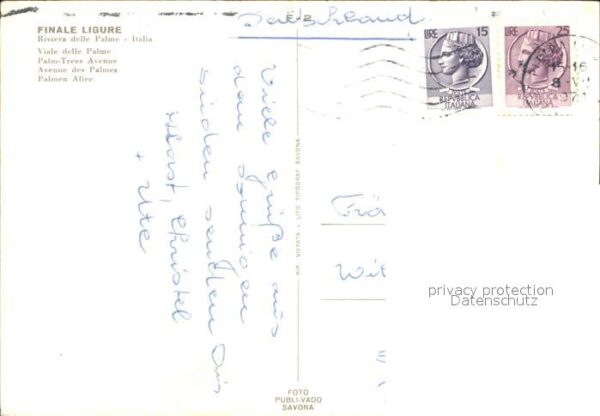 FINALE LIGURE
Riviera delle Palme - Italia
Viale delle Palme
Palm-Trees Avenue
Avenue des Palmes
Palmen Allee
Deutschland
LIRE 15
POSTE
REPUBBLICA
ITALIANA
LIRE 25
POSTE
REPUBBLICA
ITALIANA
15-16
Viele Grüße aus
dem sonnigen
Süden senden Dir
Horst, Christel
+ Ute
RIP. VIETATA - LITO TIPOGRAF SAVONA
Wit
privacy protection
Datenschutz
FOTO
PUBLI-VADO
SAVONA